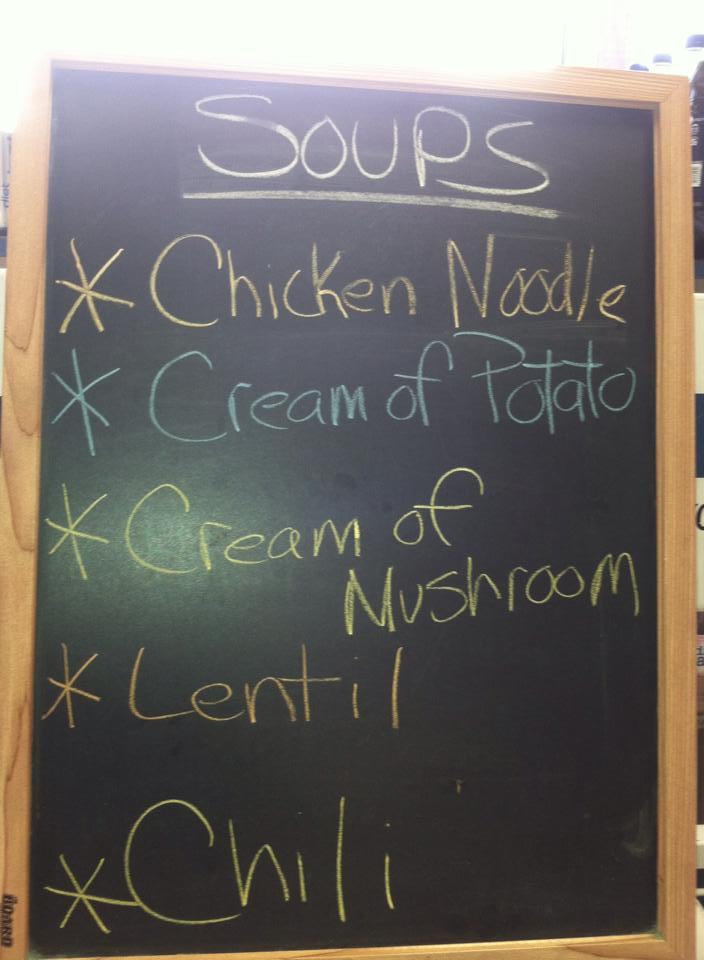 SOUPS
* Chicken Noodle
* Cream of Potato
* Cream of
Mushroom
* Lentil
* Chili
BOARD
diet